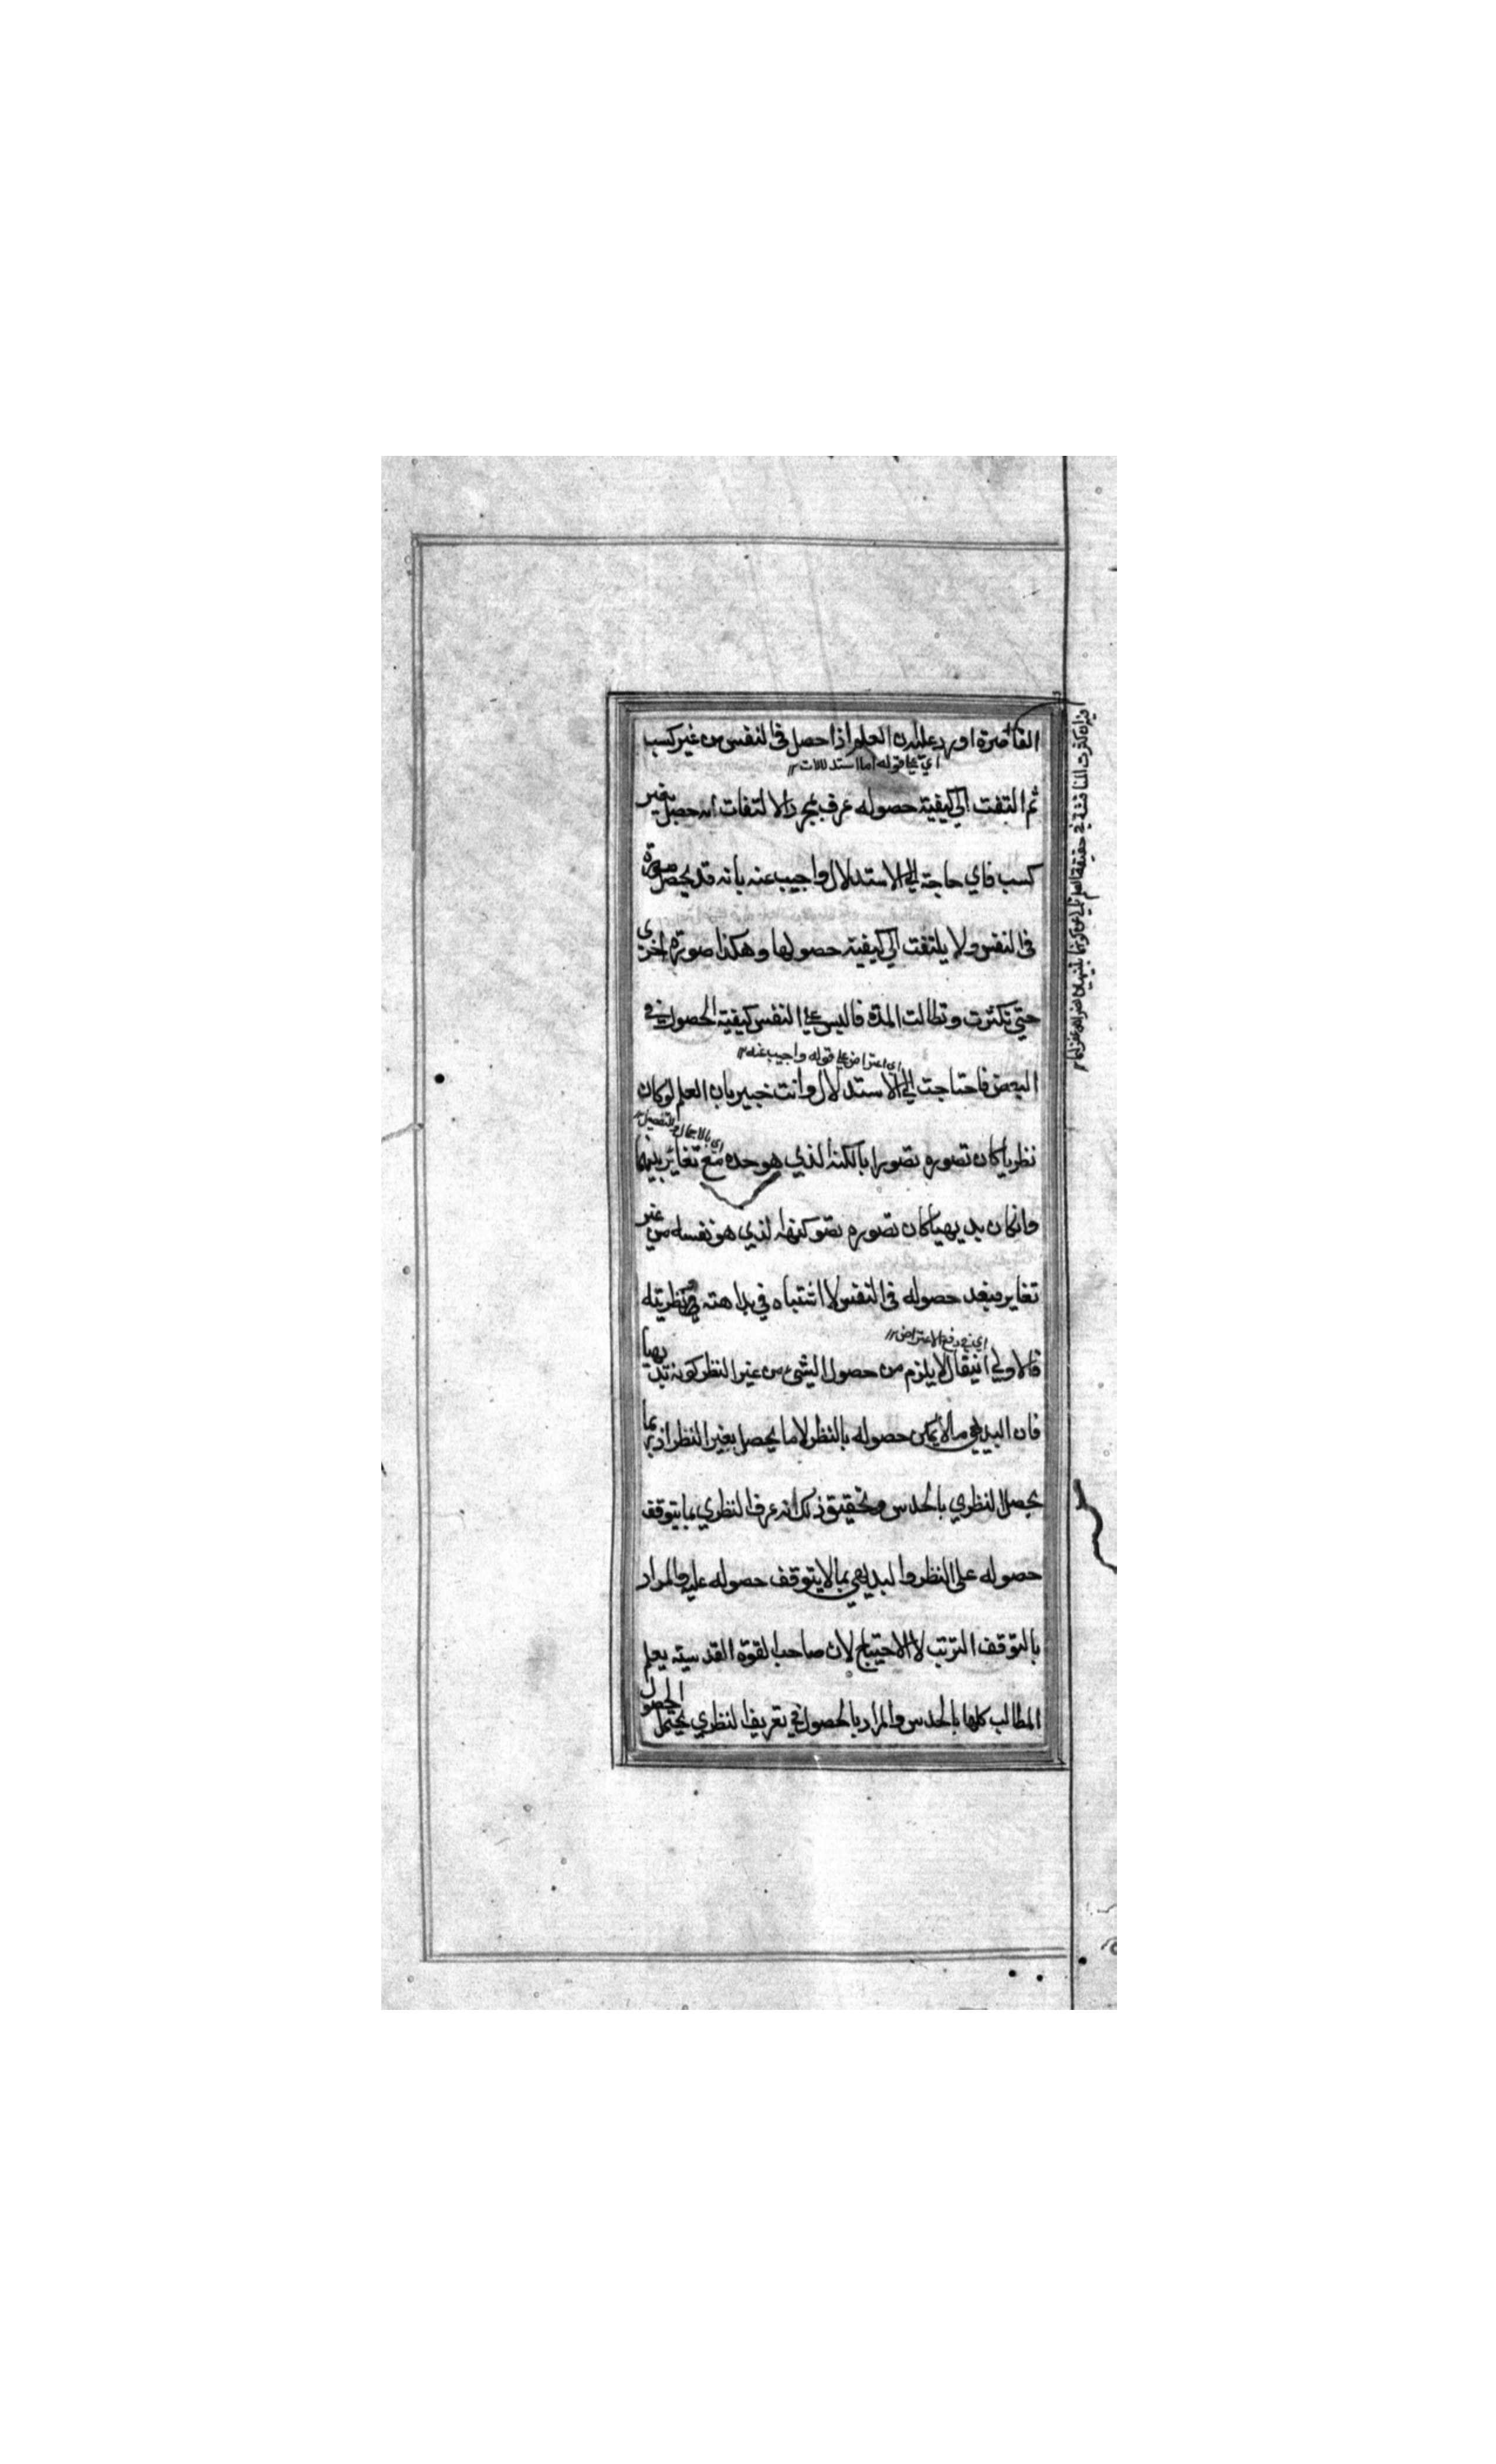 القاصرة اورد عليه بان العلم اذا حصل فى النفس من غير كسب
اي على قوله اما استدلالات
ثم التفت الى كيفية حصوله عرف بمجرد الالتفات انه حصل بغير
كسب فاي حاجة الى الاستدلال واجيب عنه بانه قد يحصل صورة
فى النفس ولا يلتفت الى كيفية حصولها وهكذا صورة اخرى
حتي تكثرت وتطالت المدة فالتبس على النفس كيفية الحصول في
اي اعتراض على قوله واجيب عنه
البعض فاحتاجت الى الاستدلال وانت خبير بان العلم لو كان
اى بالاجمال والتفصيل
نظريا كان تصوره تصورا بالكنه الذي هو حده مع تغاير بينهما
وانكان بديهيا كان تصوره تصو كنهه الذي هو نفسه من غير
تغاير فبعد حصوله فى النفس لا اشتباه في بداهته ونظريته
اي في دفع الاعتراض
فالاولي ان يقال لا يلزم من حصول الشيء من غير النظر كونه بديهيا
فان البديهي ما لا يمكن حصوله بالنظر لا ما يحصل بغير النظر اذ ربما
يحصل النظري بالحدس وتحقيق ذلك انه عرف النظري بما يتوقف
حصوله على النظر والبديهي بما لا يتوقف حصوله عليه والمراد
بالتوقف الترتب لا الاحتياج لان صاحب القوة القدسية يعلم
المطالب كلها بالحدس والمراد بالحصول في تعريف النظري يحتمل الحصول
كثرت المناقشة في حقيقة العلم